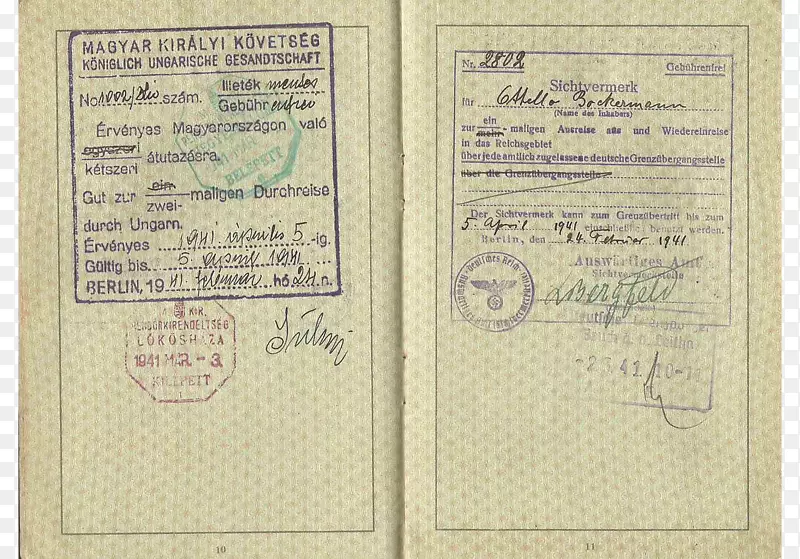 MAGYAR KIRÁLYI KÖVETSÉG
KÖNIGLICH UNGARISCHE GESANDTSCHAFT
No 1002/ szám. Illeték mentes
Gebühr
Érvényes Magyarországon való
egyszeri
kétszeri átutazásra.
Gut zur ein- zwei- maligen Durchreise
durch Ungarn.
Érvényes 1941 április 5 -ig.
Gültig bis 5. 1941
BERLIN, 1941 február hó 24 n.
BELÉPETT
KIR.
LŐKÖSHÁZA
1941 MÁR. - 3.
KILÉPETT
10
Nr. 2802 Gebührenfrei
Sichtvermerk
für Otello Bockermann
(Name des Inhabers)
zur ein mehr - maligen Ausreise aus und Wiedereinreise
in das Reichsgebiet
über jede amtlich zugelassene deutsche Grenzübergangsstelle
über die Grenzübergangsstelle
Der Sichtvermerk kann zum Grenzübertritt bis zum
5. April 1941 einschließl. benutzt werden.
Berlin, den 24. Februar 1941
Auswärtiges Amt
Sichtvermerkstelle
Bergfeld
Deutsches Reich
41 10-11
11